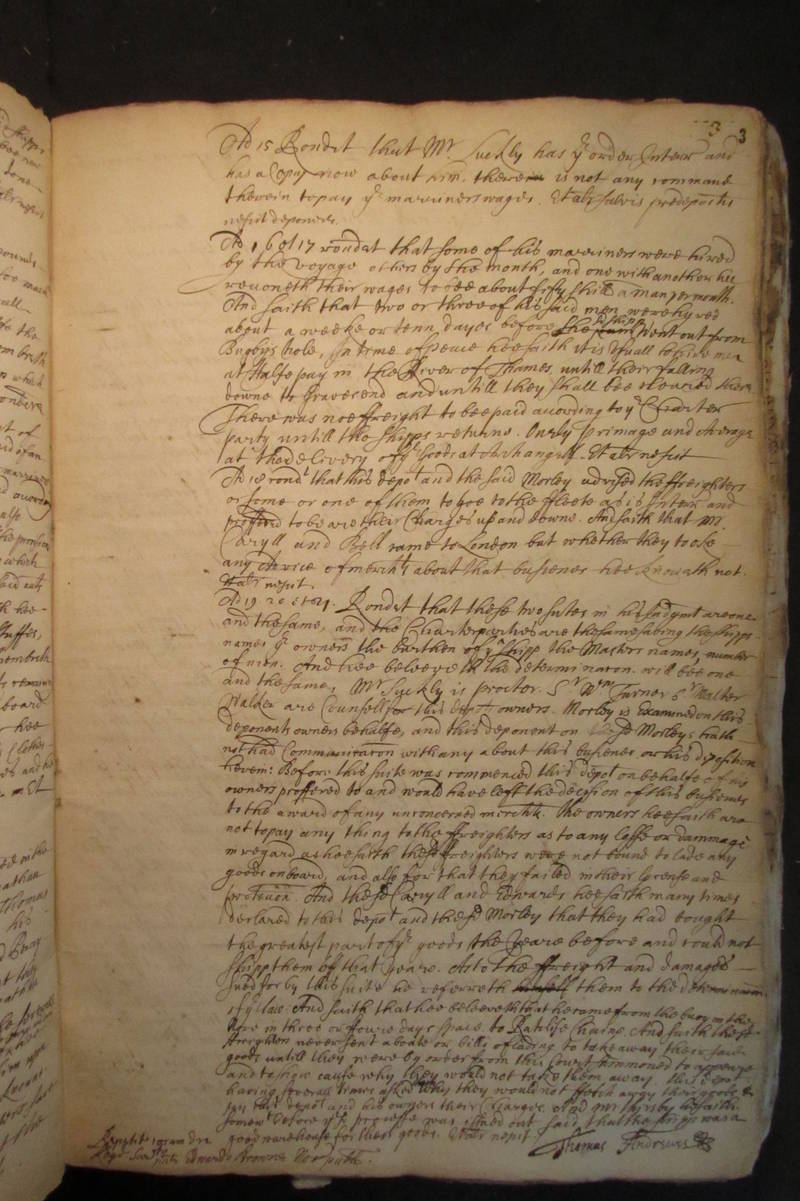 3 3
Ad 15 Rondet that Mr Suckly has ye order Interr and
has a Copy now about him. there is not any command
therein to pay ye marriners wages. Et alr salvis predepositis
nescit deponere.
Ad 16 et 17 rondet that some of his marriners were hired
by the voyage others by the month, and one with another hee
reconeth their wages to bee about fifty shill a man per month.
And saith that two or three of his said men were hyred
about a weeke or tenn dayes before the sd shipp went out from
Bugbys hole, In time of peace hee saith it is usuall to hire men
at halfe pay in the River of Thames, untill their falling
downe to Gravesend and untill they shall bee cleared there
There was noe ffreight to bee paid according to ye Charter
party untill the shipps returne. Onely primage and Average
at the delivery of ye goods at Archangell. Et alr nescit
Ad 18 rondt that this depot and the said Morley advised the ffreighters
or some or one of them to goe to the ffleete as is Interr and
proffered to beare their Charges up and downe. And saith that
Caryll and Bell came to London but whether they tooke
any advice of mercht about that busines hee knoweth not.
Et alr nescit
Ad 19 20 et 21. Rondet that these two suites in his judgmt are one
and the same, and the Charterparties are the same saving the shipps
names ye owners the burthen of ye shipp the Masters names, number
of men. And hee beleeveth the determinacon will bee one
and the same, Mr Suckly is proctor Sr Wm Turner Sr Walter
Walker are Counsell for this depot owners. Morley is Examined on this
deponents owners behalfe, and this deponent on the sd Morleys hath
not had Communicacon with any about this busines or his deposition
herein: Before this suite was commenced this depot on behalfe of his
owners proffered to and would have left the decision of this busines
to the award of any unconcerned merchts. The owners hee saith are
not to pay any thing to the ffreighters as to any losse or dammage
in regard as hee saith the sd ffreighters were not bound to lade any
goods on board, and also for that they failed in their lycense and
protection. And the sd Caryll and Edwards hee saith many times
declared to this depot and the sd Morley that they had bought
the greatest part of ye goods the yeare before and could not
shipp them of that yeare. As to the ffreight and damages
sued for by this suite he referreth them to the determinacon
of ye law And saith that hee beleeveth that he come from the buoy in the
Nore in three or foure dayes space to Ratcliffe Chaine. And saith the sd
ffreighters never sent a boate or bills of lading to take away their said
goods untill they were by order from this Court summoned to appeare
and to shew cause why they would not take them away this depot
having severall times asked why they would not fetch away their goods &
pay this depot and his owners their Charges. And
before ye processe was issued out said that the shipp was a
good warehouse for their goods. Et alr nescit
Thomas Andrewes